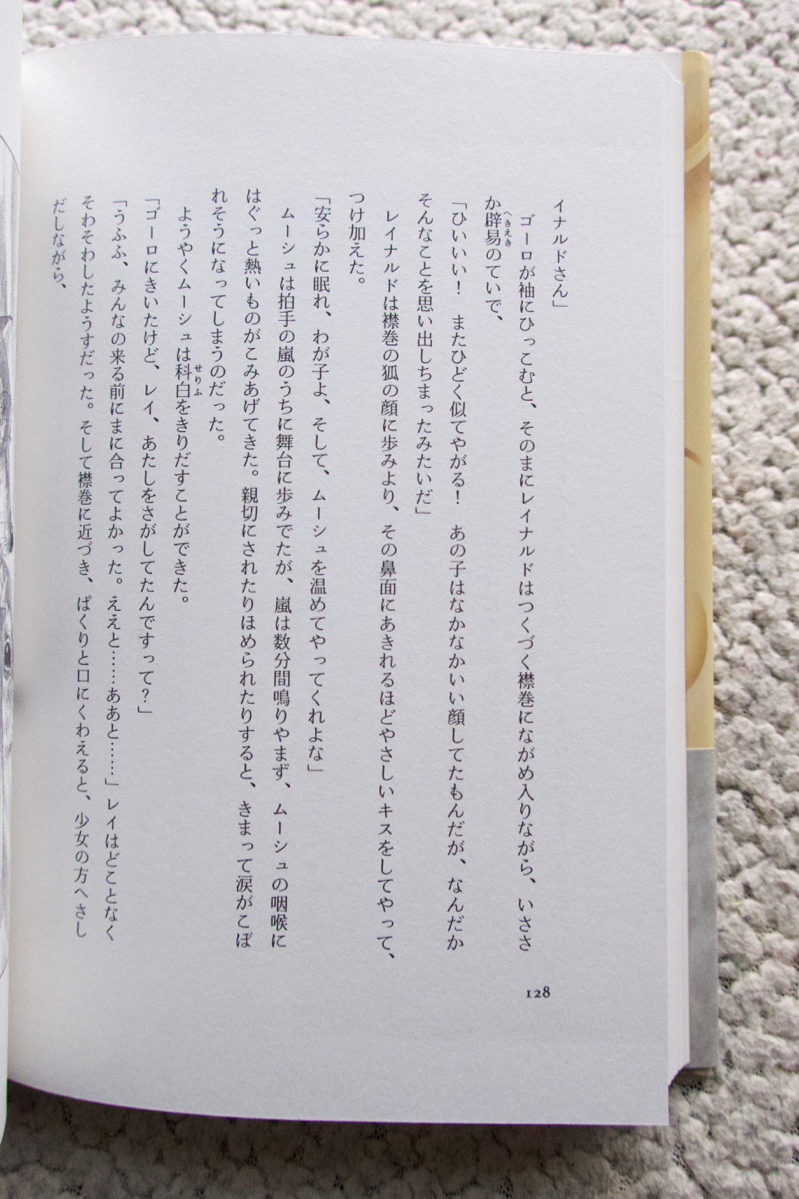 イナルドさん」
　ゴーロが袖にひっこむと、そのまにレイナルドはつくづく襟巻にながめ入りながら、いささ
か辟易のていで、
へきえき
「ひいいい！　またひどく似てやがる！　あの子はなかなかいい顔してたもんだが、なんだか
そんなことを思い出しちまったみたいだ」
　レイナルドは襟巻の狐の顔に歩みより、その鼻面にあきれるほどやさしいキスをしてやって、
つけ加えた。
「安らかに眠れ、わが子よ、そして、ムーシュを温めてやってくれよな」
　ムーシュは拍手の嵐のうちに舞台に歩みでたが、嵐は数分間鳴りやまず、ムーシュの咽喉に
はぐっと熱いものがこみあげてきた。親切にされたりほめられたりすると、きまって涙がこぼ
れそうになってしまうのだった。
　ようやくムーシュは科白をきりだすことができた。
せりふ
「ゴーロにきいたけど、レイ、あたしをさがしてたんですって？」
「うふふ、みんなの来る前にまに合ってよかった。ええと……ああと……」レイはどことなく
そわそわしたようすだった。そして襟巻に近づき、ぱくりと口にくわえると、少女の方へさし
だしながら、
128